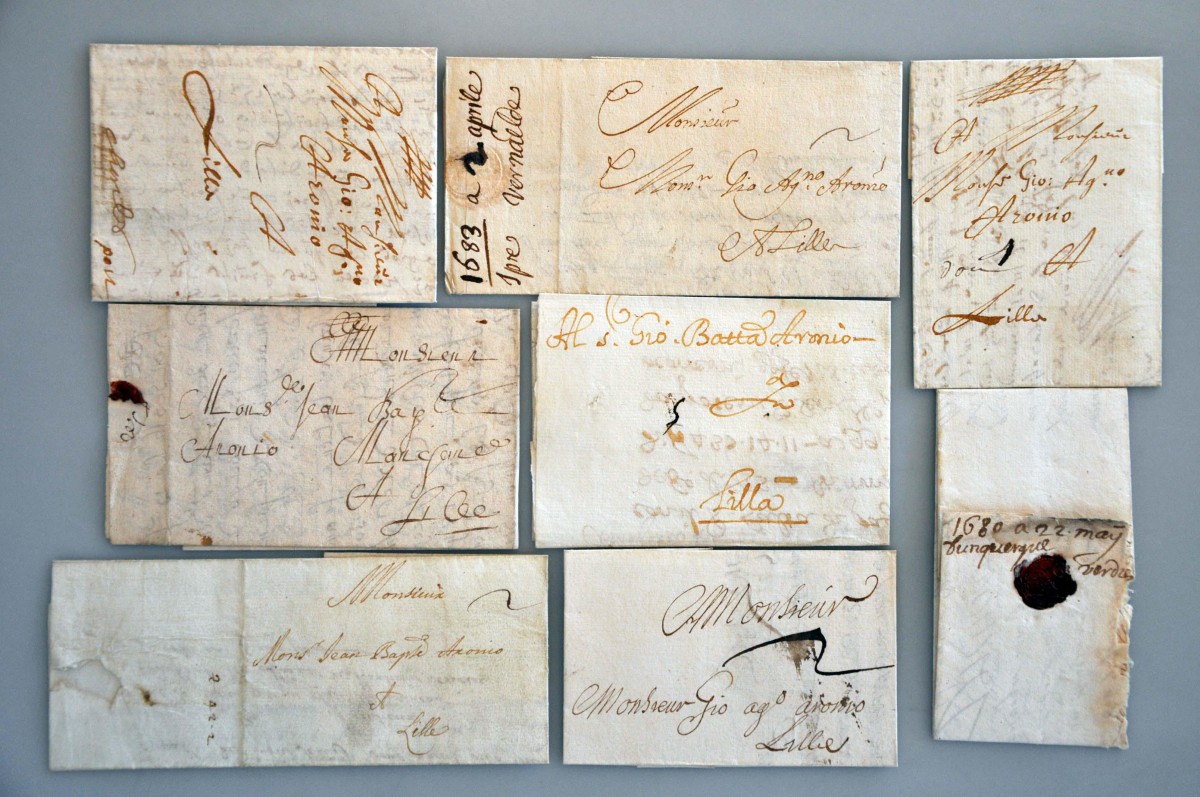 A Monsieur
Mons.r Gio: Ag.no
Aronio
A
Lille
1683 a 2 aprile
Ipre vernalde
Monsieur
Mons.r Gio Ag.no Aronio
A Lille
A Monsieur
Mons.r Gio: Ag.no
Aronio
A
Lille
Monsieur
Mons.r Jean Bap.te
Aronio
A
Lille
Al s.r Gio Batta Aronio
In
5
Lilla
1680 a 22 may
Dunquerque
Monsieur
2
Mons.r Jean Bap.te Aronio
A
Lille
Monsieur
2
Monsieur Gio ag.o aronio
Lille